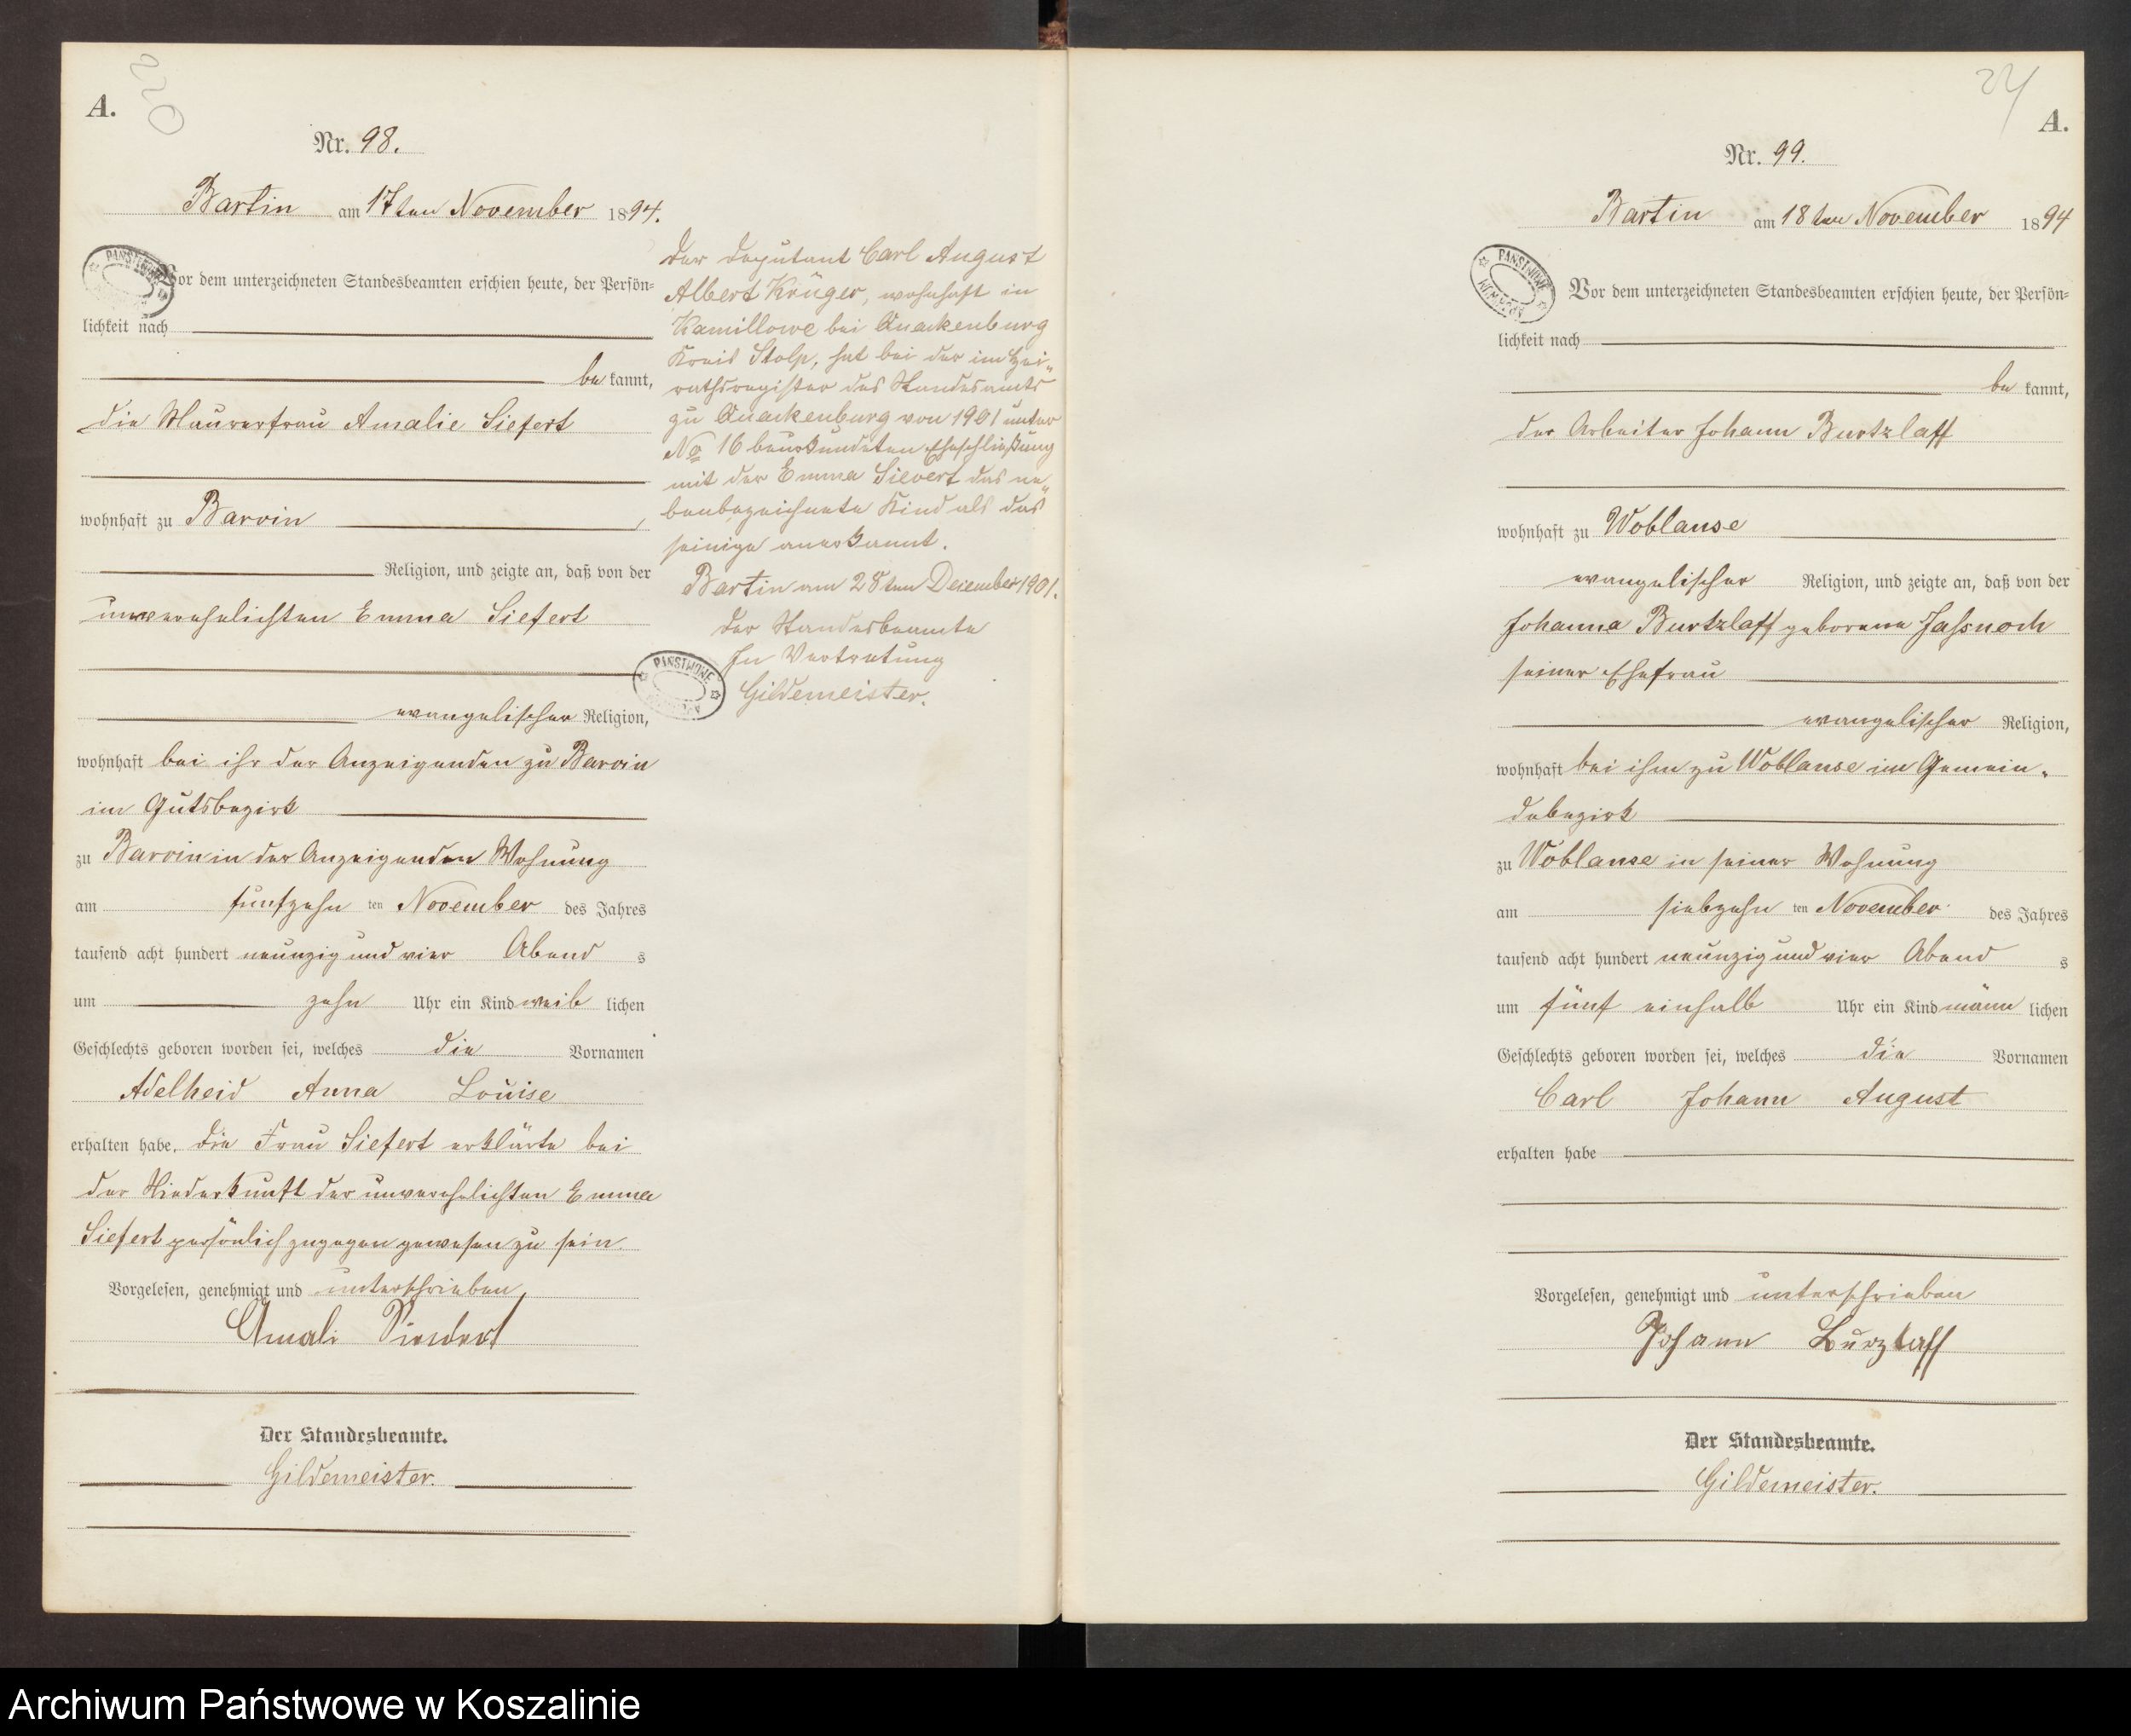 A.
Nr. 98.
Bartin am 17ten November 1894.
Vor dem unterzeichneten Standesbeamten erschien heute, der Persön=
lichkeit nach
be kannt,
die Maurerfrau Amalie Siefert
wohnhaft zu Barvin
Religion, und zeigte an, daß von der
unverehelichten Emma Siefert
evangelischer Religion,
wohnhaft bei ihr der Anzeigenden zu Barvin
im Gutsbezirk
zu Barvin in der Anzeigenden Wohnung
am fünfzehn ten November des Jahres
tausend acht hundert neunzig und vier Abend s
um zehn Uhr ein Kind weib lichen
Geschlechts geboren worden sei, welches die Vornamen
Adelheid Anna Louise
erhalten habe. Die Frau Siefert erklärte bei
der Niederkunft der unverehelichten Emma
Siefert persönlich zugegen gewesen zu sein.
Vorgelesen, genehmigt und unterschrieben
Amali
Der Standesbeamte.
Gildemeister.
Der Deputant Carl August
Albert Krüger, wohnhaft in
Kamillowe bei Quackenburg
Kreis Stolp, hat bei der im Hei-
rathsregister des Standesamts
zu Quackenburg von 1901 unter
No 16 beurkundeten Eheschließung
mit der Emma Sievert das ne-
benbezeichnete Kind als das
seinige anerkannt.
Bartin am 28ten Dezember 1901.
Der Standesbeamte
In Vertretung
Gildemeister.
PAŃSTWOWE
24
A.
Nr. 99.
Bartin am 18ten November 1894
PAŃSTWOWE
Vor dem unterzeichneten Standesbeamten erschien heute, der Persön=
lichkeit nach
be kannt,
der Arbeiter Johann Burtzlaff
wohnhaft zu Woblanse
evangelischer Religion, und zeigte an, daß von der
Johanna Burtzlaff geborene Jassnoch
seiner Ehefrau
evangelischer Religion,
wohnhaft bei ihm zu Woblanse im Gemein-
debezirk
zu Woblanse in seiner Wohnung
am siebzehn ten November des Jahres
tausend acht hundert neunzig und vier Abend s
um fünf einhalb Uhr ein Kind männ lichen
Geschlechts geboren worden sei, welches die Vornamen
Carl Johann August
erhalten habe
Vorgelesen, genehmigt und unterschrieben
Johann Burzlaff
Der Standesbeamte.
Gildemeister.
Archiwum Państwowe w Koszalinie